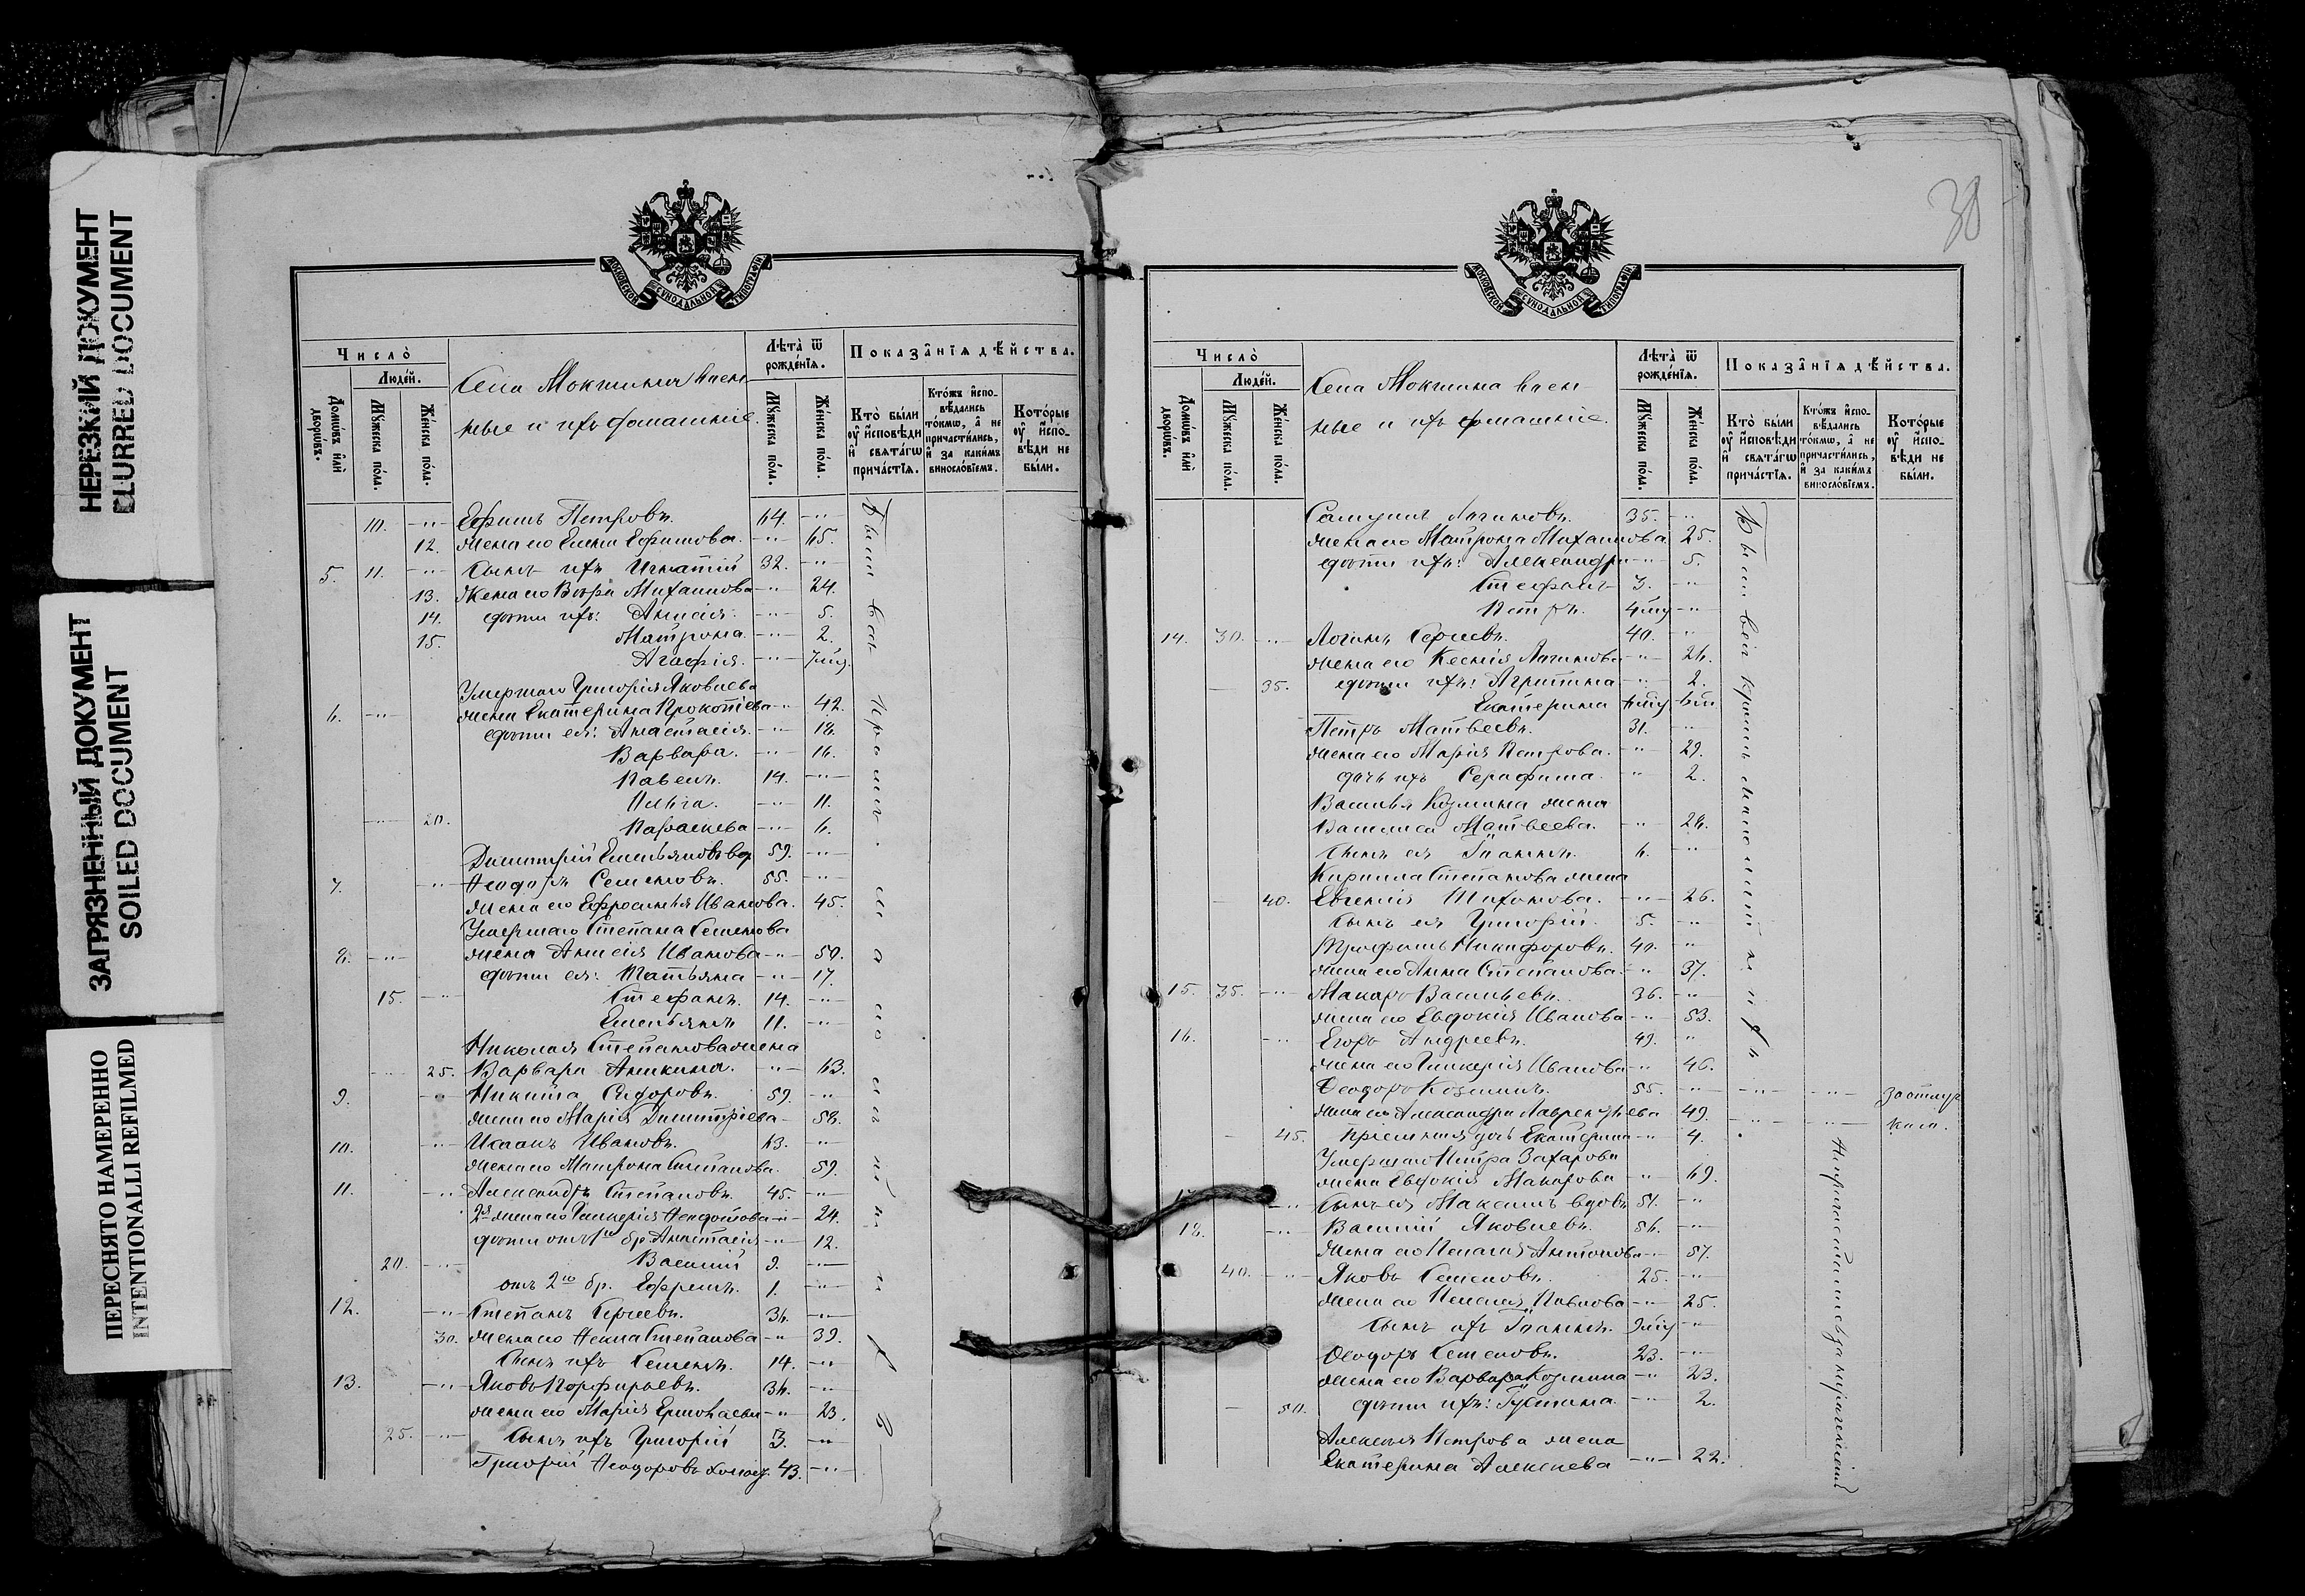 НЕРЕЗКИЙ ДОКУМЕНТ
BLURRED DOCUMENT
ЗАГРЯЗНЕННЫЙ ДОКУМЕНТ
SOILED DOCUMENT
ПЕРЕСНЯТО НАМЕРЕННО
INTENTIONALLI REFILMED
МОСКОВСКОЙ СѴНОДАЛЬНОЙ ТИПОГРАФІИ
Число̀
Людéй.
Домѡ́въ и҆лѝ дворѡ́въ.
Мꙋ́жеска по́ла.
Же́нска по́ла.
Села Мокшина
ные и ихъ домашніе.
Лѣ́та ѿ рожде́нїѧ.
Мꙋ́жеска по́ла.
Же́нска по́ла.
Показа̑нїѧ дѣ́йства.
Кто̀ бы́ли оу҆ и҆сповѣ́ди и҆ свѧта́гѡ прича́стїѧ.
Кто́жъ и҆спо-вѣ́дались то́кмѡ, а҆ не причасти́лись, и҆ за каки́мъ винослѡ́вїемъ.
Кото́рые оу҆ и҆спо-вѣ́ди не бы́ли.
10. Ефимъ Петровъ. 64.
12. жена его Елена Ефимова. 65.
5. 11. сынъ ихъ Игнатій 32.
13. Жена его Вѣра Михаилова 24.
14. дѣти ихъ: Анисія 5.
15. Матрона. 2.
Агафія.
Умершаго Григорія Яковлева
6. жена Екатерина Прокопіева 42.
дѣти ея: Анастасія. 18.
Варвара. 16.
Павелъ. 14.
Ольга. 11.
20. Параскева 6.
Димитрій Емельяновъ вд. 59.
7. Ѳеодоръ Семеновъ. 55.
жена его Ефросинія Иванова. 45.
Умершаго Степана Семенова
8. жена Анисія Иванова 50.
дѣти ея: Татьяна 17.
15. Стефанъ. 14.
Емельянъ 11.
Николая Степанова жена
25. Варвара Аникина. 63.
9. Никита Сидоровъ. 59.
жена его Марія Димитріева 58.
10. Исаакъ Ивановъ. 63.
жена его Матрона Степанова. 59.
11. Александръ Степановъ. 45.
2я жена его Гликерія Ѳеодотова 24.
дѣти отъ 1го бр. Анастасія 12.
20. Василій 9.
отъ 2го бр. Ефремъ. 1.
12. Степанъ Сергеевъ. 36.
30. жена его Ѳекла Степанова 39.
сынъ ихъ Семенъ. 14.
13. Яковъ Порфирьевъ. 36.
жена его Марія Ермолаева 23.
25. сынъ ихъ Григорій 3.
Григорій Ѳеодоровъ холост. 43.
38
МОСКОВСКОЙ СѴНОДАЛЬНОЙ ТИПОГРАФІИ
Число̀
Людéй.
Домѡ́въ и҆лѝ дворѡ́въ.
Мꙋ́жеска по́ла.
Же́нска по́ла.
Села Мокшина
ные и ихъ домашніе.
Лѣ́та ѿ рожде́нїѧ.
Мꙋ́жеска по́ла.
Же́нска по́ла.
Показа̑нїѧ дѣ́йства.
Кто̀ бы́ли оу҆ и҆сповѣ́ди и҆ свѧта́гѡ прича́стїѧ.
Кто́жъ и҆спо-вѣ́дались то́кмѡ, а҆ не причасти́лись, и҆ за каки́мъ винослѡ́вїемъ.
Кото́рые оу҆ и҆спо-вѣ́ди не бы́ли.
Самуилъ Логиновъ. 35.
жена его Матрона Михаилова 25.
дѣти ихъ: Александра 5.
Стефанъ 3.
Петръ.
14. 30. Логинъ Сергеевъ. 40.
жена его Ксенія Логинова 26.
35. дѣти ихъ: Агрипина 2.
Екатерина
Петръ Матвеевъ. 31.
жена его Марія Петрова. 29.
дочь ихъ Серафима. 2.
Василья Козмина жена
Василиса Матвеева. 28.
сынъ ея Іоаннъ. 6.
Кирилла Степанова жена
40. Евгенія Тихонова. 26.
сынъ ея Григорій. 5.
Трофимъ Никифоровъ. 40.
жена его Анна Степанова. 37.
15. 35. Макаръ Васильевъ. 36.
жена его Евдокія Иванова 53.
16. Егоръ Андреевъ. 49.
жена его Гликерія Иванова 46.
Ѳеодоръ Козминъ. 55.
жена его Александра Лаврентьева 49.
45. Пріемная дочь Екатерина 4.
Умершаго Петра Захарова
жена Евдокія Макарова 69.
сынъ ея Максимъ вдовъ 51.
18. Василій Яковлевъ. 56.
жена его Пелагія Антонова 57.
40. Яковъ Семеновъ. 25.
жена его Пелагея Павлова 25.
сынъ ихъ Іоаннъ.
Ѳеодоръ Семеновъ. 23.
жена его Варвара Козмина 23.
50. дѣти ихъ: Іустина. 2.
Алексѣя Петрова жена
Екатерина Алексѣева 22.